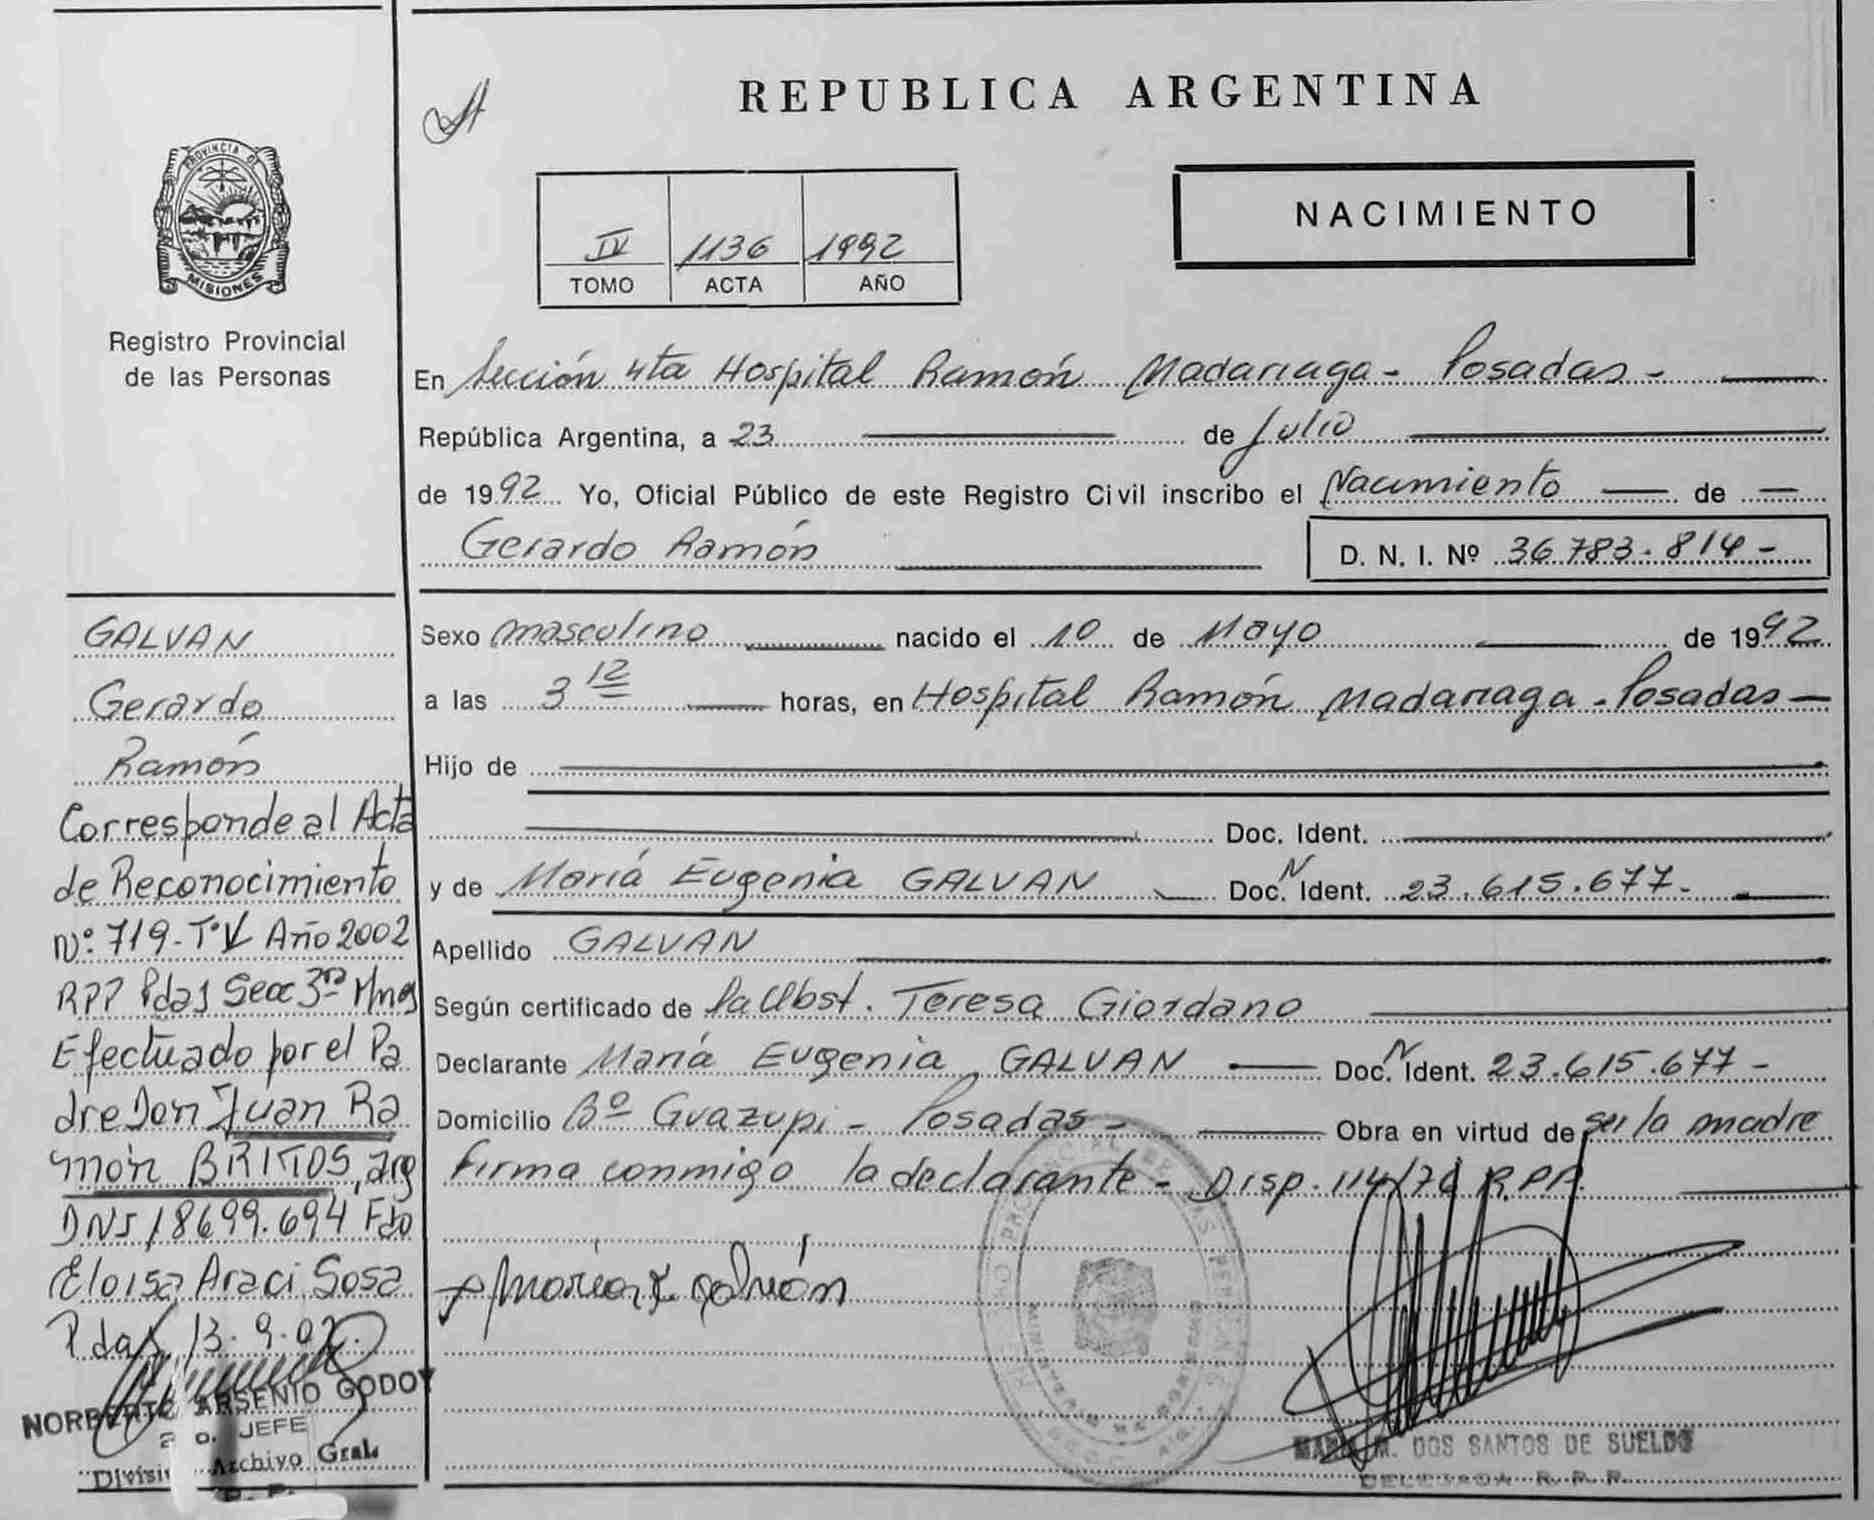 REPUBLICA ARGENTINA
NACIMIENTO
IV 1136 1992
TOMO ACTA AÑO
PROVINCIA DE
MISIONES
Registro Provincial
de las Personas
En Sección 4ta Hospital Ramón Madariaga - Posadas -
República Argentina, a 23 de Julio
de 1992 Yo, Oficial Público de este Registro Civil inscribo el Nacimiento de
Gerardo Ramón
D. N. I. Nº 36.783.814 -
Sexo masculino nacido el 10 de Mayo de 1992
a las 3 12 horas, en Hospital Ramón Madariaga - Posadas -
Hijo de
Doc. Ident.
y de María Eugenia GALVAN Doc. N Ident. 23.615.677 -
Apellido GALVAN
Según certificado de la Obst. Teresa Giordano
Declarante María Eugenia GALVAN Doc. N Ident. 23.615.677 -
Domicilio Bº Guazupi - Posadas - Obra en virtud de ser la madre
firma conmigo la declarante - Disp. 114/76 R.P.P.
María E Galván
MARIA M. DOS SANTOS DE SUELDO
DELEGADA R. P. P.
GALVAN
Gerardo
Ramón
Corresponde al Acta
de Reconocimiento
Nº: 719 - Tº V Año 2002
RPP Pdas Secc 3ra Mnes
Efectuado por el Pa
dre Don Juan Ra
món BRITOS, arg
DNI 18699.694 Fdo
Eloisa Araci Sosa
Pdas 13-9-02.
NORBERTO ARSENIO GODOY
JEFE
Archivo Gral.